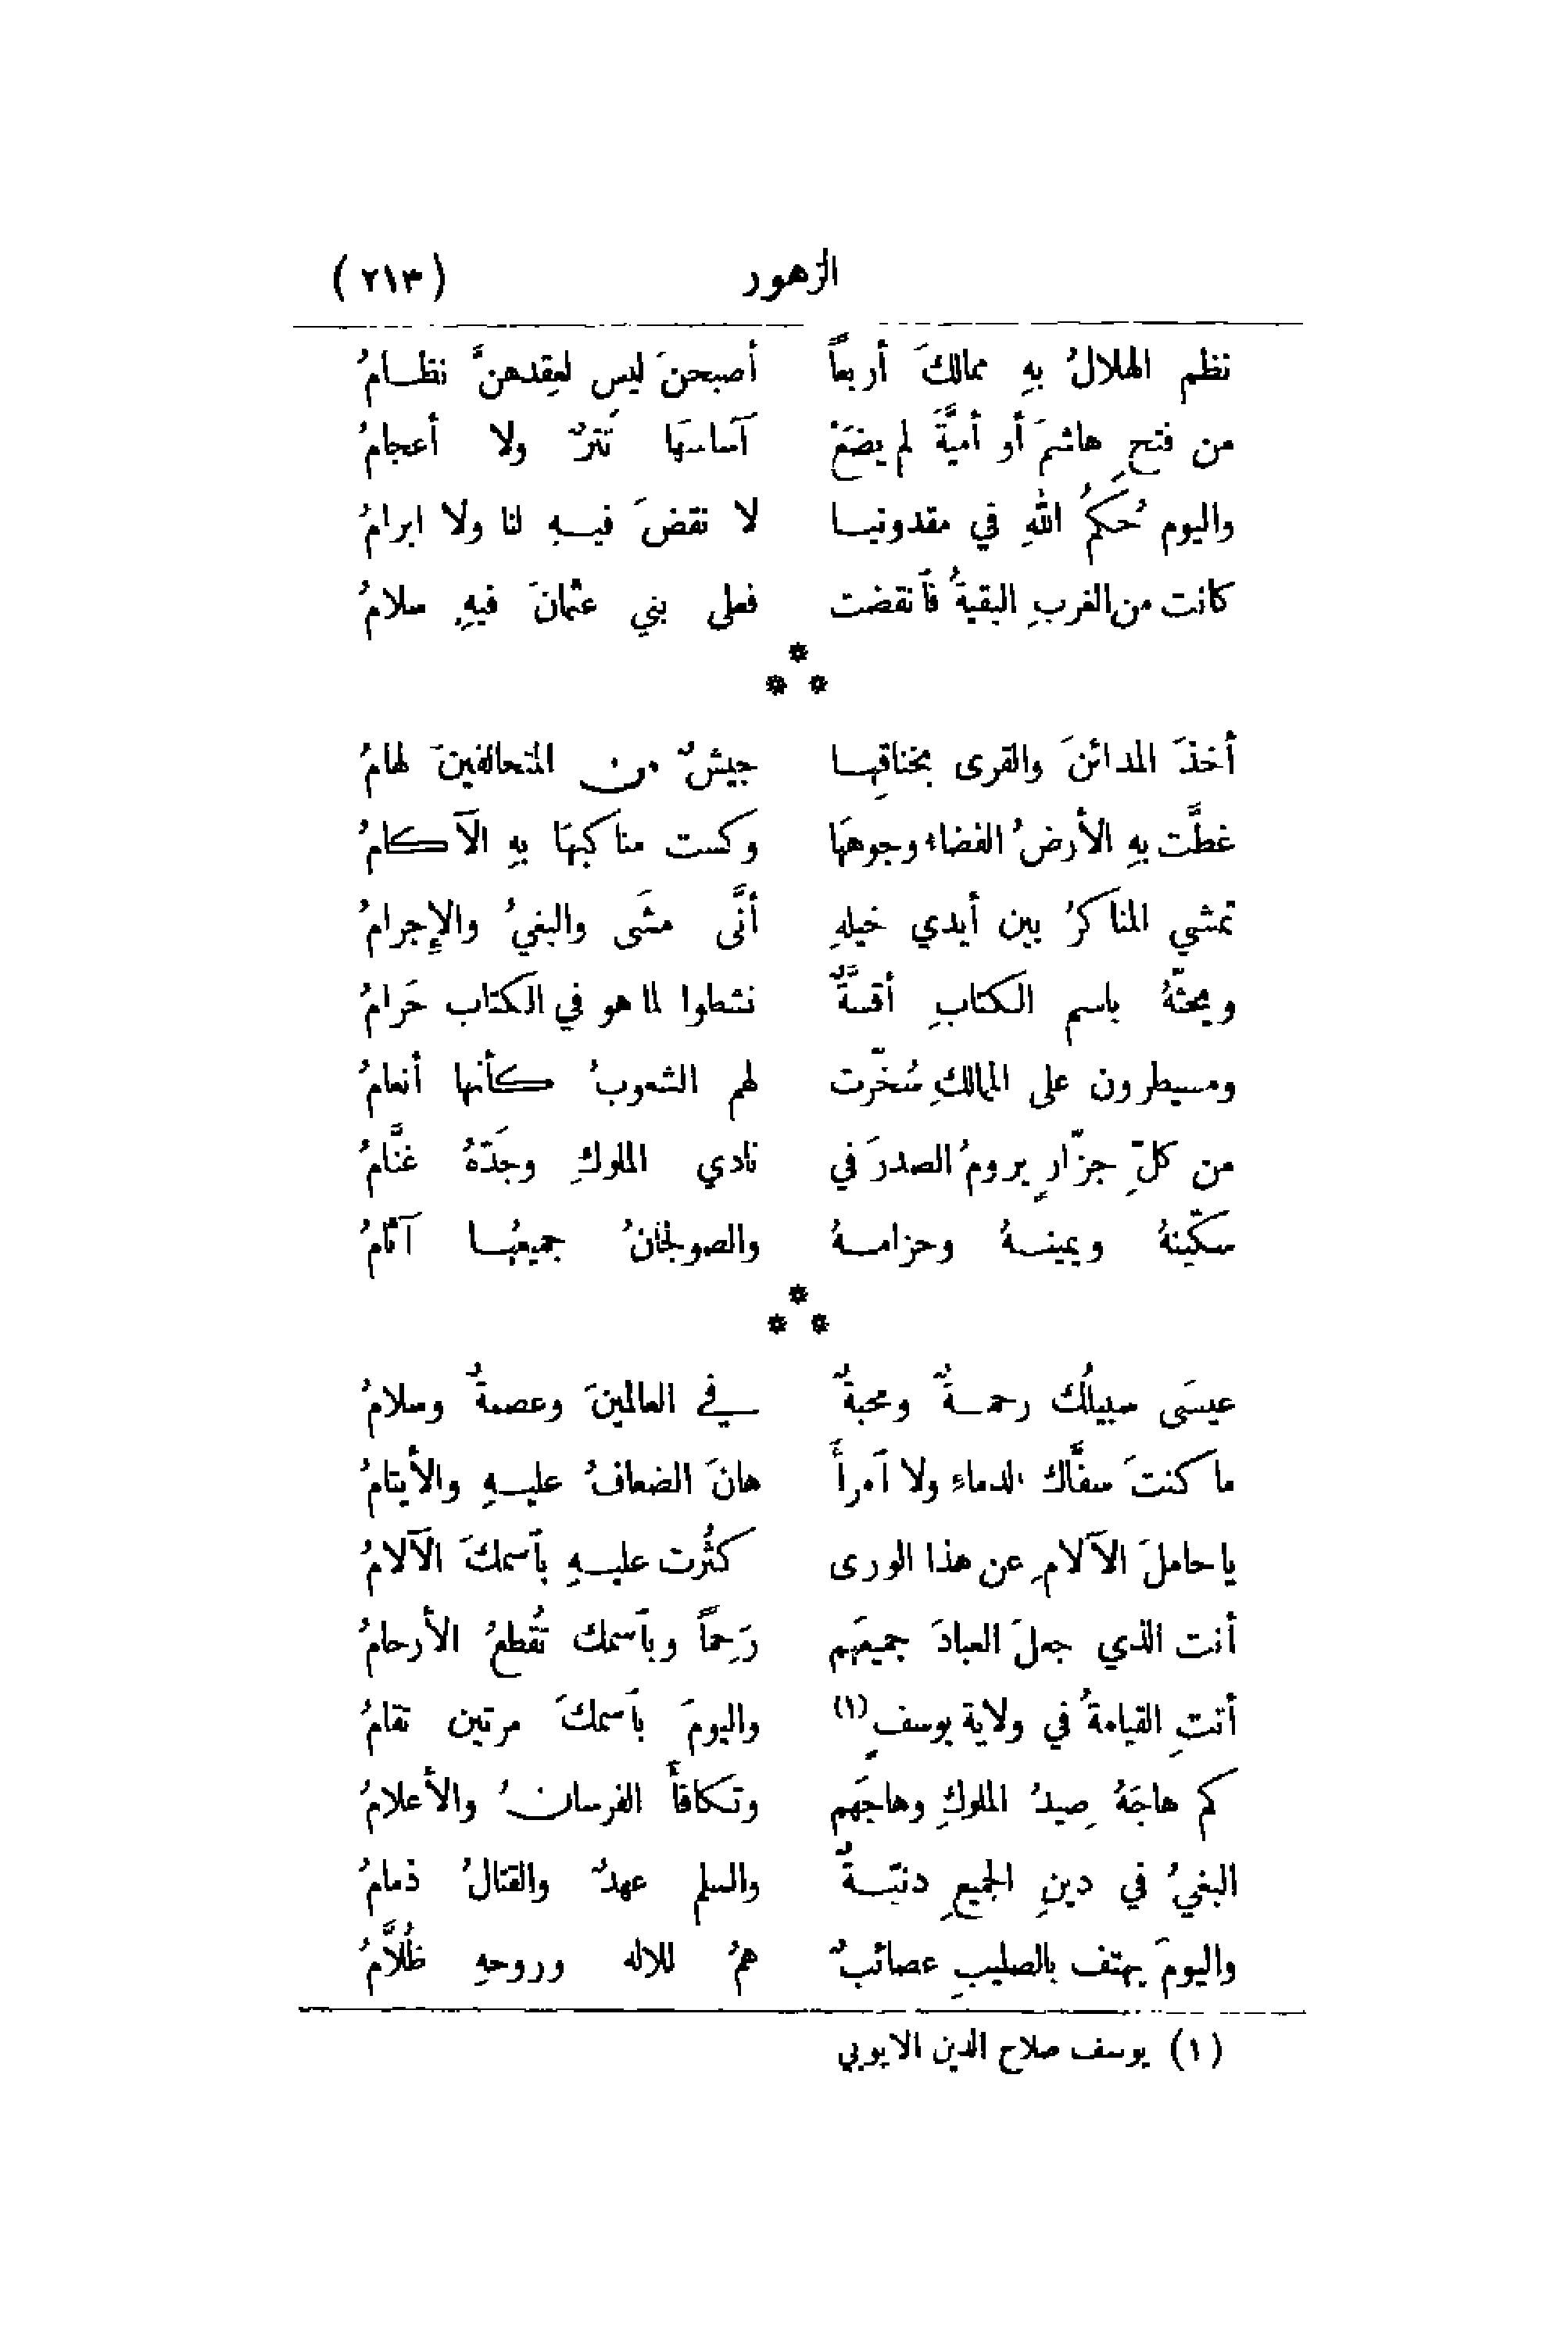 الزهور (٢١٣)
نظم الهلالُ بهِ ممالكَ أربعاً أصبحنَ ليس لعِقدهنَّ نظـامُ
من فتحِ هاشمَ أو أميَّةَ لم يضَعْ آساسَها تُترٌ ولا أعجامُ
واليوم حُكمُ اللهِ في مقدونيـا لا نقضَ فيـهِ لنا ولا ابرامُ
كانت من الغربِ البقيةُ فاَنقضت فعلى بني عثمانَ فيهِ سلامُ
*
* *
أخذَ المدائنَ والقرى بخناقِهـا جيشٌ من المتحالفينَ لهامُ
غطَّت بهِ الأرضُ الفضاء وجوهَها وكست مناكبهَا بهِ الآكامُ
تمشي المناكرُ بين أيدي خيلهِ أنَّى مشَى والبغيُ والإِجرامُ
ويحثّهُ باسم الكتابِ أقسَّةٌ نشطوا لما هو في الكتاب حَرامُ
ومسيطرون على الممالكِ سُخّرت لهم الشعوبُ كأنها أنعامُ
من كلّ جزّارٍ يرومُ الصدرَ في نادي الملوكِ وجَدّهُ غنَّامُ
سكّينهُ ويمينـهُ وحزامـهُ والصولجانُ جميعُهـا آثامُ
*
* *
عيسَى سبيلُك رحمـةٌ ومحبةٌ في العالمينَ وعصمةٌ وسلامُ
ما كنتَ سفَّاك الدماءِ ولا اَمرأً هانَ الضعافُ عليـهِ والأيتامُ
يا حاملَ الآلامِ عن هذا الورى كثُرت عليـهِ باَسمكَ الآلامُ
أنت الذي جعلَ العبادَ جميعَهم رَحِماً وباَسمك تُقطعُ الأرحامُ
أتتِ القيامةُ في ولاية يوسفٍ (١) واليومَ باَسمكَ مرتين تقامُ
كم هاجَهُ صِيدُ الملوكِ وهاجَهم وتكافأَ الفرسانُ والأعلامُ
البغيُ في دينِ الجميعِ دنيّـةٌ والسلم عهدٌ والقتالُ ذمامُ
واليومَ يهتف بالصليبِ عصائبٌ همُ للاله وروحهِ ظُلاَّمُ
(١) يوسف صلاح الدين الايوبي